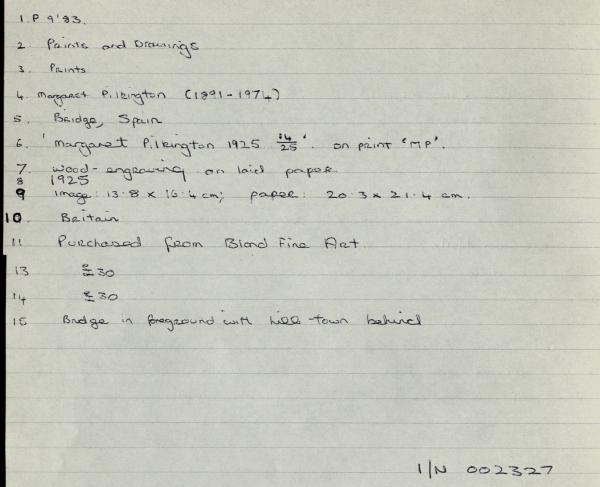 1. P 9'83.
2. Prints and Drawings
3. Prints
4. Margaret Pilkington (1891-1974)
5. Bridge, Spain
6. 'Margaret Pilkington 1925 14/25'. on print 'MP'.
7. wood-engraving on laid paper
8 1925
9 Image: 13.8 x 16.4 cm; paper: 20.3 x 21.4 cm.
10. Britain
11 Purchased from Blond Fine Art
13 £30
14 £30
15 Bridge in foreground with hill-town behind
1/N 002327